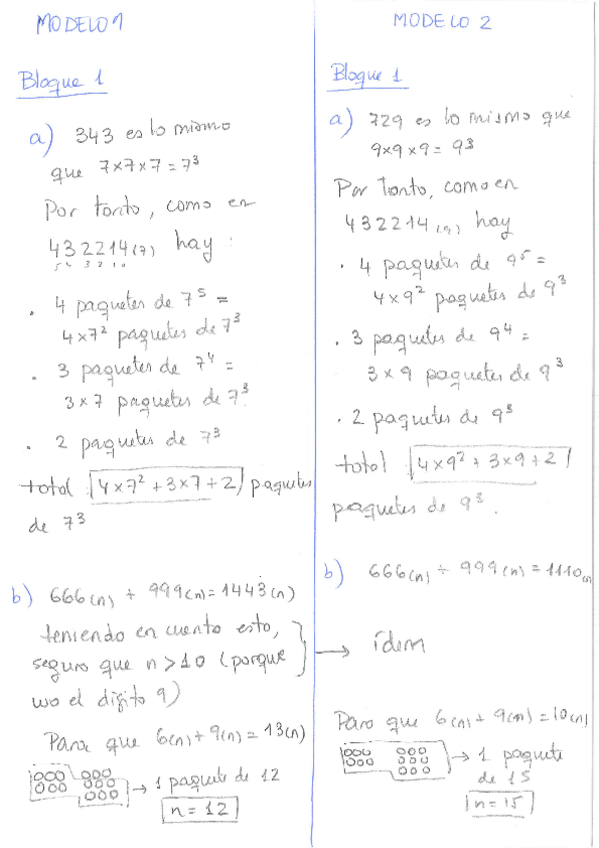 MODELO 1
Bloque 1
a) 343 es lo mismo
que 7×7×7 = 7³
Por tanto, como en
432214₍₇₎ hay :
5 4 3 2 1 0
. 4 paquetes de 7⁵ =
4×7² paquetes de 7³
. 3 paquetes de 7⁴ =
3×7 paquetes de 7³
. 2 paquetes de 7³
total 4×7² + 3×7 + 2 paquetes
de 7³
b) 666₍ₙ₎ + 999₍ₙ₎ = 1443₍ₙ₎
teniendo en cuenta esto,
seguro que n > 10 (porque
uso el dígito 9)
Para que 6₍ₙ₎ + 9₍ₙ₎ = 13₍ₙ₎
→ 1 paquete de 12
n = 12
MODELO 2
Bloque 1
a) 729 es lo mismo que
9×9×9 = 9³
Por tanto, como en
432214₍₉₎ hay
. 4 paquetes de 9⁵ =
4×9² paquetes de 9³
. 3 paquetes de 9⁴ =
3×9 paquetes de 9³
. 2 paquetes de 9³
total 4×9² + 3×9 + 2
paquetes de 9³.
b) 666₍ₙ₎ + 999₍ₙ₎ = 1110₍ₙ₎
→ ídem
Para que 6₍ₙ₎ + 9₍ₙ₎ = 10₍ₙ₎
→ 1 paquete
de 15
n = 15